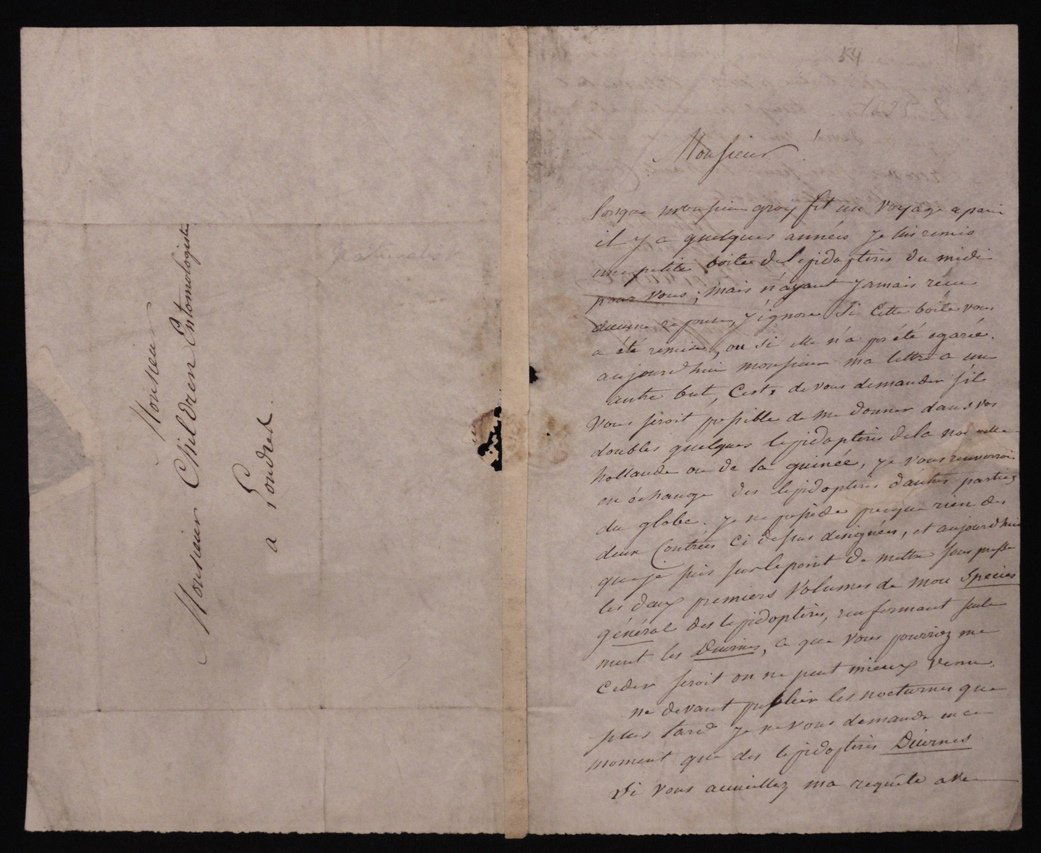 Monsieur
Monsieur Children Entomologiste
a Londres.
54
Monsieur
lorsque monsieur gray fit un voyage a paris
il y a quelques années je lui remis
une petite boite de lepidopteres du midi
pour vous; mais n'ayant jamais recu
aucune reponse, j'ignore si cette boite vous
a été remise, ou si elle n'a pas été egarée.
aujourd'hui monsieur ma lettre a un
autre but, c'est, de vous demander s'il
vous seroit possible de me donner dans vos
doubles quelques lepidopteres de la nouvelle
hollande ou de la guinée, je vous renverrois
en échange des lepidopteres d'autres parties
du globe. je ne possède presque rien des
deux contrées ci dessus designées, et aujourd'hui
que je suis sur le point de mettre sous presse
les deux premiers volumes de mon Species
général des lepidopteres, renfermant seule
ment les Diurnes, ce que vous pourriez me
ceder seroit on ne peut mieux venu.
ne devant publier les nocturnes que
plus tard je ne vous demande en ce
moment que des lepidopteres Diurnes
si vous accueillez ma requête avec